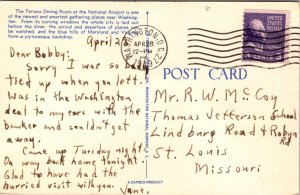 The Terrace Dining Room at the National Airport is one
of the newest and smartest gathering places near Washing-
ton. From its curving windows the whole
arrival and departure of planes
watched, and the blue hills of Maryland and Virginia
form a picturesque backdrop.
WASHINGTON, D.C.
APR 28
12-PM
April 28
Dear Bobby:
Sorry I was so
tied up when you left.
Was in the Washington
deal to my ears with the
banker and couldn't get
away.
Came up Tuesday night
On way back home tonight.
Glad to have had the
hurried visit with you.
Jane.
A CAPSCO PRODUCT
POST CARD
Mr. R. W. McCoy
Thomas Jefferson School
Lindburg Road + Robyn
Rd.
St. Louis
Missouri